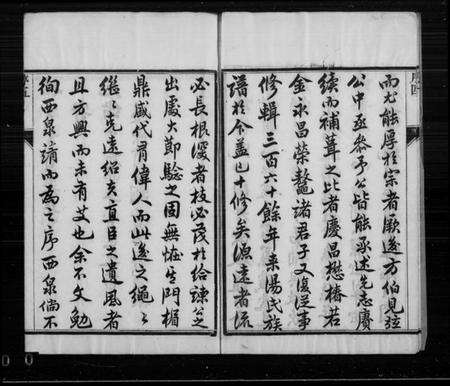 而尤能厚於宗者厥後方伯見弦
公中丞參予公皆能承述先志賡
續而補葺之比者慶昌懋椿若
金永昌榮鼇諸君子又復從事
修輯三百六十餘年來湯氏族
譜於今蓋已十修矣源遠者流
必長根深者枝必茂於給諫公之
出處大節驗之固無怪生門楣
鼎盛代有偉人而此後之繩之
繼之克遠紹夫直臣之遺風者
且方興而未有艾也余不文勉
徇西泉請而為之序西泉倘不